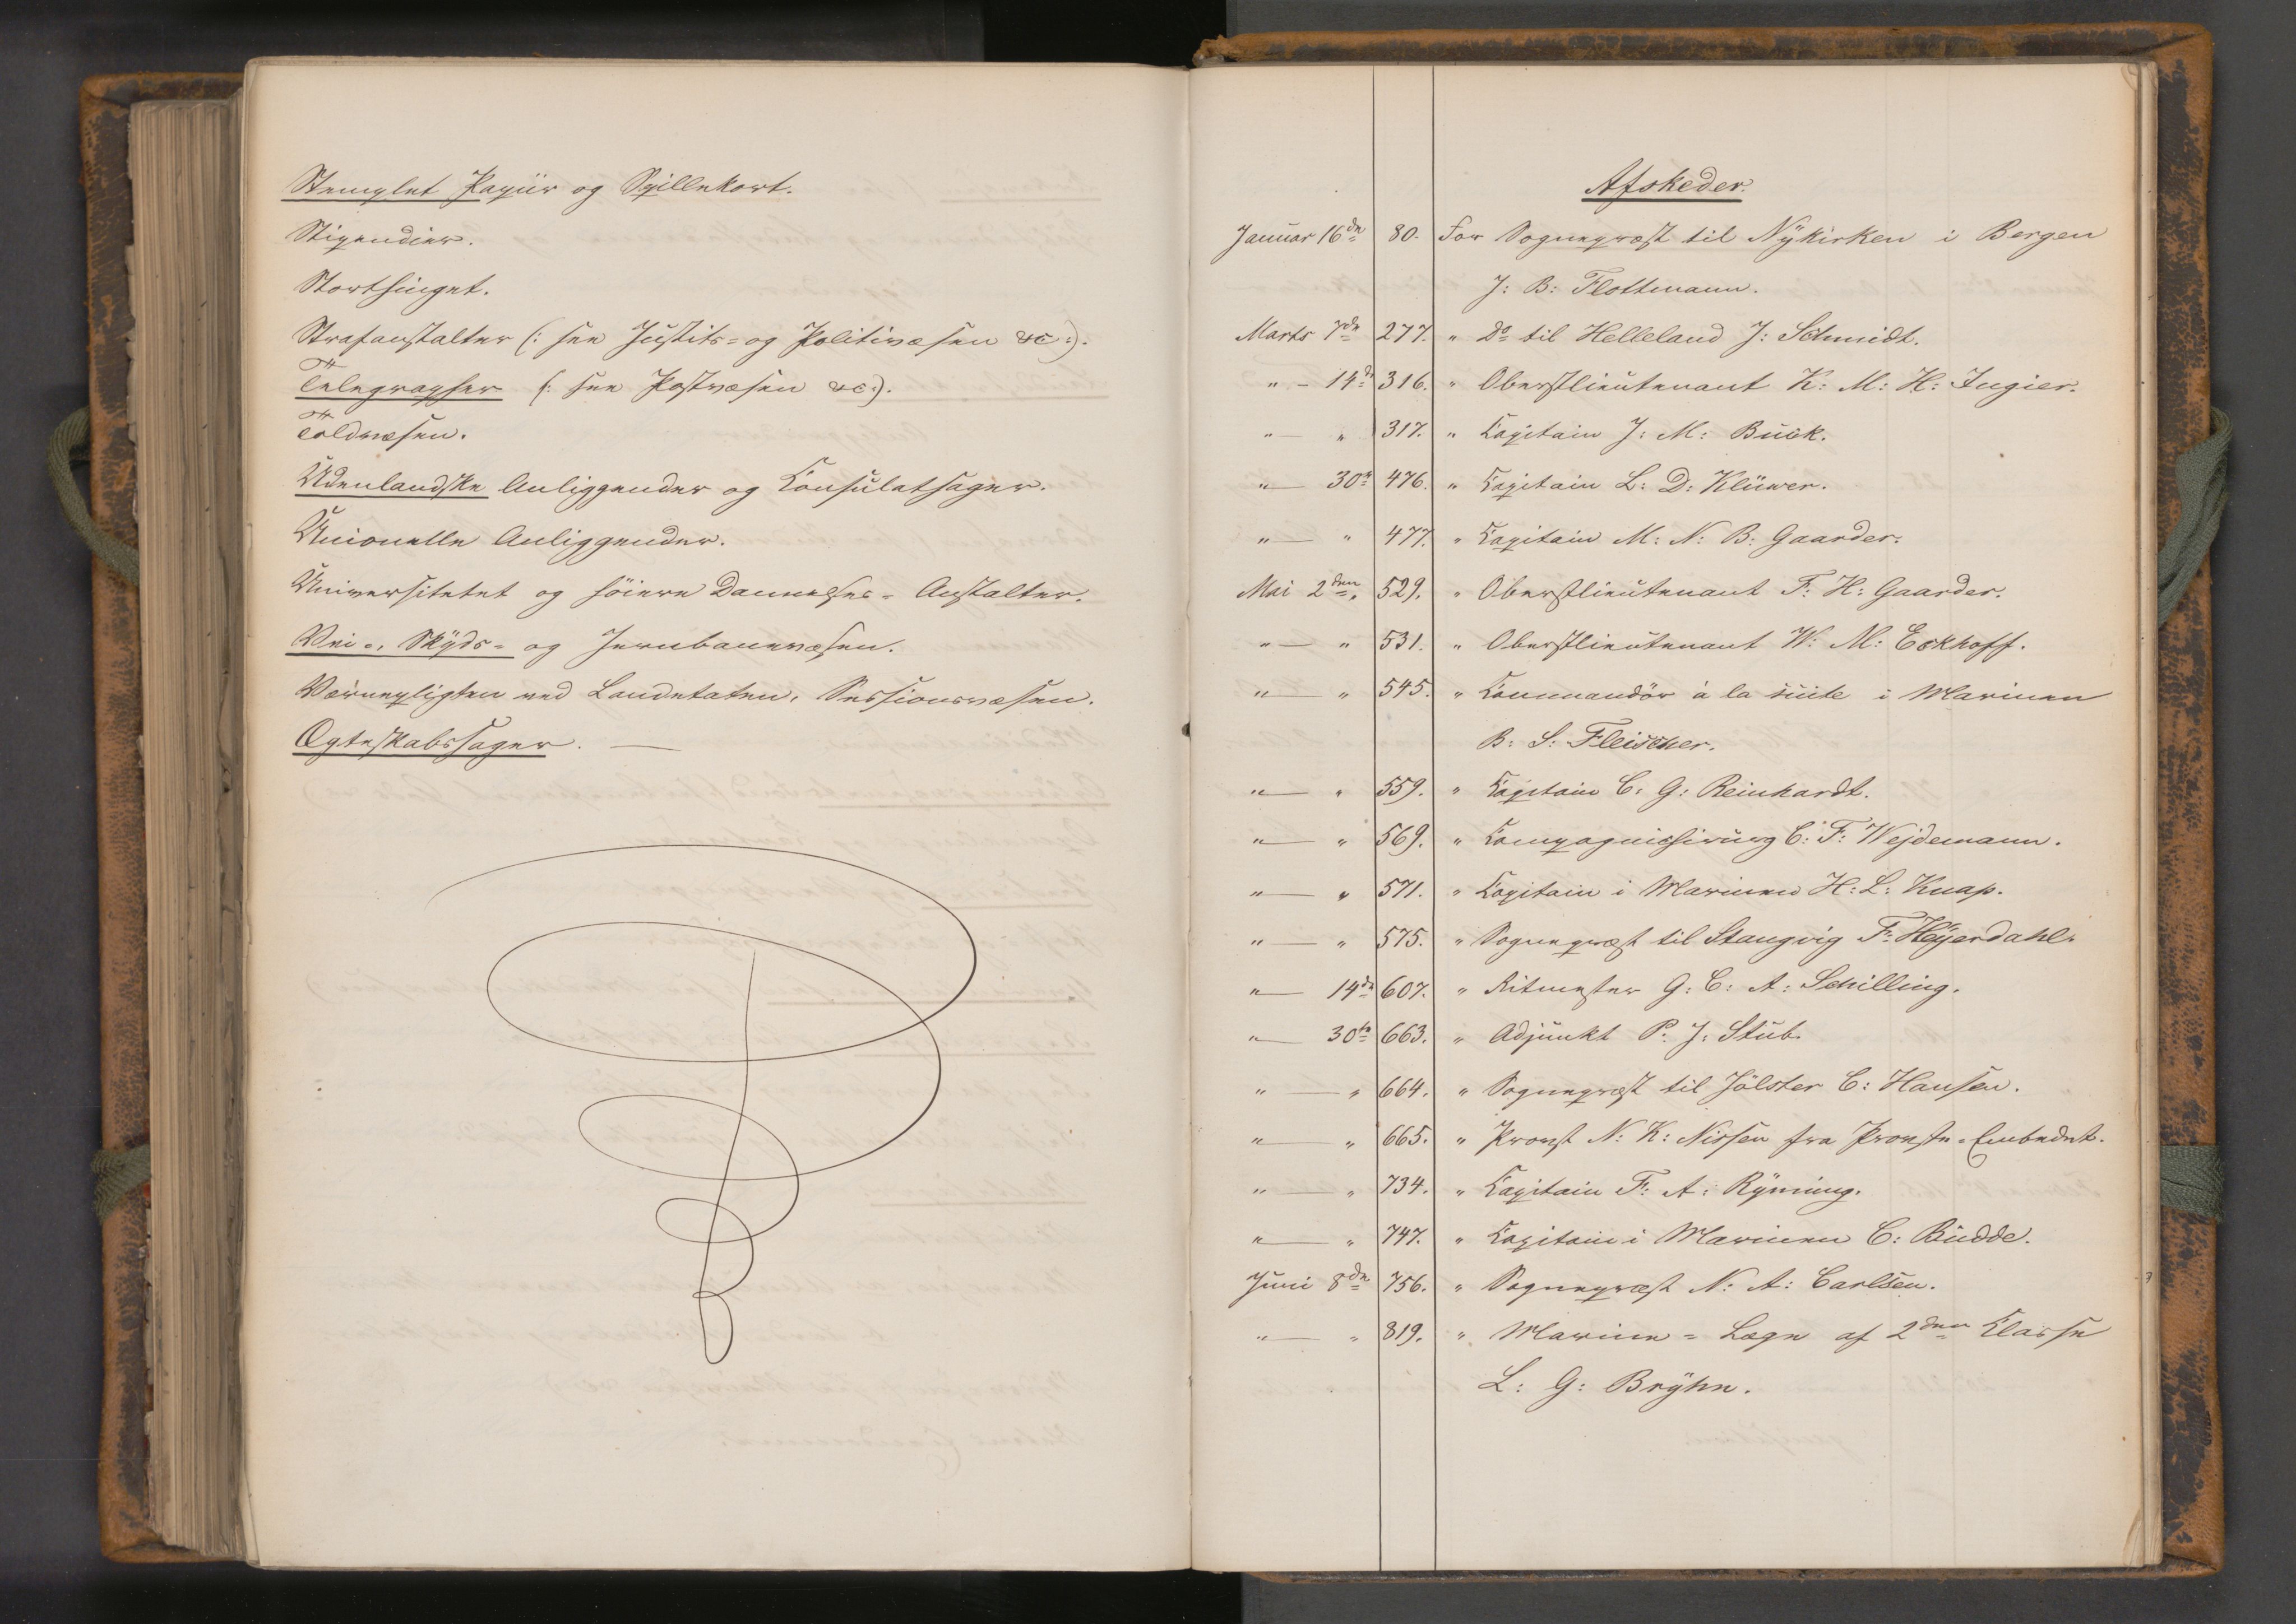 Stemplet Papiir og Spillekort.
Stipendier.
Storthinget.
Strafanstalter (: see Justits- og Politivæsen &c :).
Telegrapher (: see Postvæsen &c :).
Toldvæsen.
Udenlandske Anliggender og Consulatsager.
Unionelle Anliggender.
Universitetet og høiere Dannelses-Anstalter.
Vei-, Skyds- og Jernbanevæsen.
Værnepligten ved Landetaten, Sessionsvæsen.
Ægteskabssager. —
Afskeder.
Januar 16de 80. For Sognepræst til Nykirken i Bergen
J: B: Flottmann.
Marts 7de 277. " Do til Helleland J: Schmidt.
" - 14de 316. " Oberstlieutenant K: M: H: Ingier.
" — " 317. " Capitain J: M: Buck.
" — 30te 476. " Capitain L: D: Klüwer.
" — " 477. " Capitain M: N: B: Gaarder.
Mai 2den 529. " Oberstlieutenant F: H: Gaarder.
" — " 531. " Oberstlieutenant W: M: Eckhoff.
" — " 545. " Commandör à la suite i Marinen
B: S: Fleischer.
" — " 559. " Capitain C: G: Reinhardt.
" — " 569. " Compagnichirurg C: F: Wejdemann.
" — " 571. " Capitain i Marinen H: L: Knap.
" — " 575. " Sognepræst til Stangvig F: Heyerdahl.
" — 14de 607. " Ritmester G: C: A: Schilling.
" — 30te 663. " Adjunkt P: J: Stub.
" — " 664. " Sognepræst til Jölster C: Hansen.
" — " 665. " Provst N: K: Nissen fra Provste-Embedet.
" — " 734. " Capitain F: A: Ryning.
" — " 747. " Capitain i Marinen C: Budde.
Juni 8de 756. " Sognepræst N: A: Carlsen.
" — " 819. " Marine-Læge af 2den Classe
L: G: Bryhn.